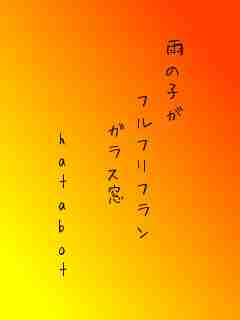 雨の子が
フルフリフラン
ガラス窓
hatabot